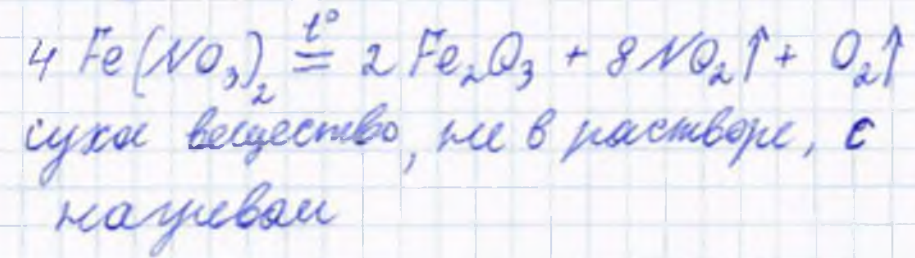 4 Fe(NO₃)₂ t°= 2 Fe₂O₃ + 8 NO₂↑ + O₂↑
сухое вещество, не в растворе, с
нагревом